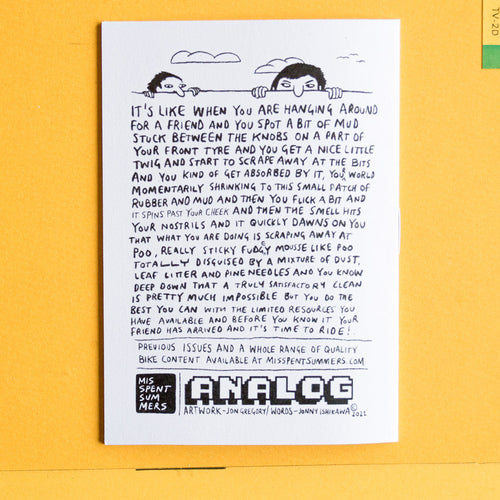 IT'S LIKE WHEN YOU ARE HANGING AROUND
FOR A FRIEND AND YOU SPOT A BIT OF MUD
STUCK BETWEEN THE KNOBS ON A PART OF
YOUR FRONT TYRE AND YOU GET A NICE LITTLE
TWIG AND START TO SCRAPE AWAY AT THE BITS
AND YOU KIND OF GET ABSORBED BY IT, YOUR WORLD
MOMENTARILY SHRINKING TO THIS SMALL PATCH OF
RUBBER AND MUD AND THEN YOU FLICK A BIT AND
IT SPINS PAST YOUR CHEEK AND THEN THE SMELL HITS
YOUR NOSTRILS AND IT QUICKLY DAWNS ON YOU
THAT WHAT YOU ARE DOING IS SCRAPING AWAY AT
POO, REALLY STICKY FUDGY MOUSSE LIKE POO
TOTALLY DISGUISED BY A MIXTURE OF DUST,
LEAF LITTER AND PINE NEEDLES AND YOU KNOW
DEEP DOWN THAT A TRULY SATISFACTORY CLEAN
IS PRETTY MUCH IMPOSSIBLE BUT YOU DO THE
BEST YOU CAN WITH THE LIMITED RESOURCES YOU
HAVE AVAILABLE AND BEFORE YOU KNOW IT YOUR
FRIEND HAS ARRIVED AND IT'S TIME TO RIDE!
PREVIOUS ISSUES AND A WHOLE RANGE OF QUALITY
BIKE CONTENT AVAILABLE AT MISSPENTSUMMERS.COM
MIS
SPENT
SUM
MERS
ANALOG
ARTWORK-JON GREGORY/WORDS-JONNY ISHIKAWA ©
2022
TV-2D